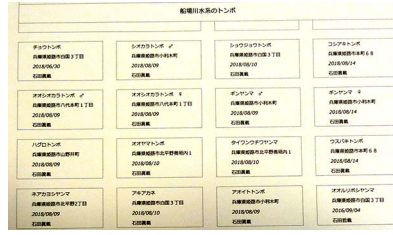 船場川水系のトンボ
チョウトンボ
兵庫県姫路市白国3丁目
2018/06/30
石田眞載
シオカラトンボ ♂
兵庫県姫路市小利木町
2018/08/09
石田眞載
ショウジョウトンボ
兵庫県姫路市白国3丁目
2018/08/10
石田眞載
コシアキトンボ
兵庫県姫路市本町68
2018/08/14
石田眞載
オオシオカラトンボ ♂
兵庫県姫路市八代本町1丁目
2018/08/09
石田眞載
オオシオカラトンボ ♀
兵庫県姫路市八代本町1丁目
2018/08/09
石田眞載
ギンヤンマ ♂
兵庫県姫路市小利木町
2018/08/09
石田眞載
ギンヤンマ ♀
兵庫県姫路市小利木町
2018/08/14
石田眞載
ハグロトンボ
兵庫県姫路市山野井町
2018/08/09
石田眞載
オオヤマトンボ
兵庫県姫路市北平野奥垣内1
2018/08/10
石田眞載
タイワンウチワヤンマ
兵庫県姫路市北平野奥垣内1
2018/08/10
石田眞載
ウスバキトンボ
兵庫県姫路市本町68
2018/08/14
石田眞載
ネアカヨシヤンマ
兵庫県姫路市北平野2丁目
2018/08/09
石田眞載
アキアカネ
兵庫県姫路市白国3丁目
2018/08/10
石田眞載
アオイトトンボ
兵庫県姫路市小利木町
2018/08/09
石田眞載
オオルリボシヤンマ
兵庫県姫路市白国3丁目
2016/09/04
石田哲載